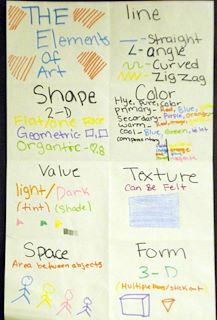 THE
Elements
of
Art
line
Straight
angle
Curved
Zigzag
Shape
2-D
Flat/one Face
Geometric
Organic
Color
Hue, pure color
primary- Red, Blue,
Secondary- Purple, Orange,
warm- Red, Orange,
cool- Blue, Green, Violet
Value
light/Dark
(tint) (Shade)
Texture
Can Be Felt
Space
Area between objects
Form
3-D